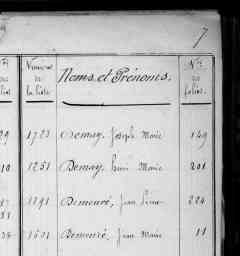 7
Numéros de la liste Noms et Prénoms. Nos des folios
29 1723 Demay, Joseph Marie 149
10 1251 Demay, Henri Marie 201
1891 Demeuré, Jean 224
1501 Demeuré, Jean Marie 11